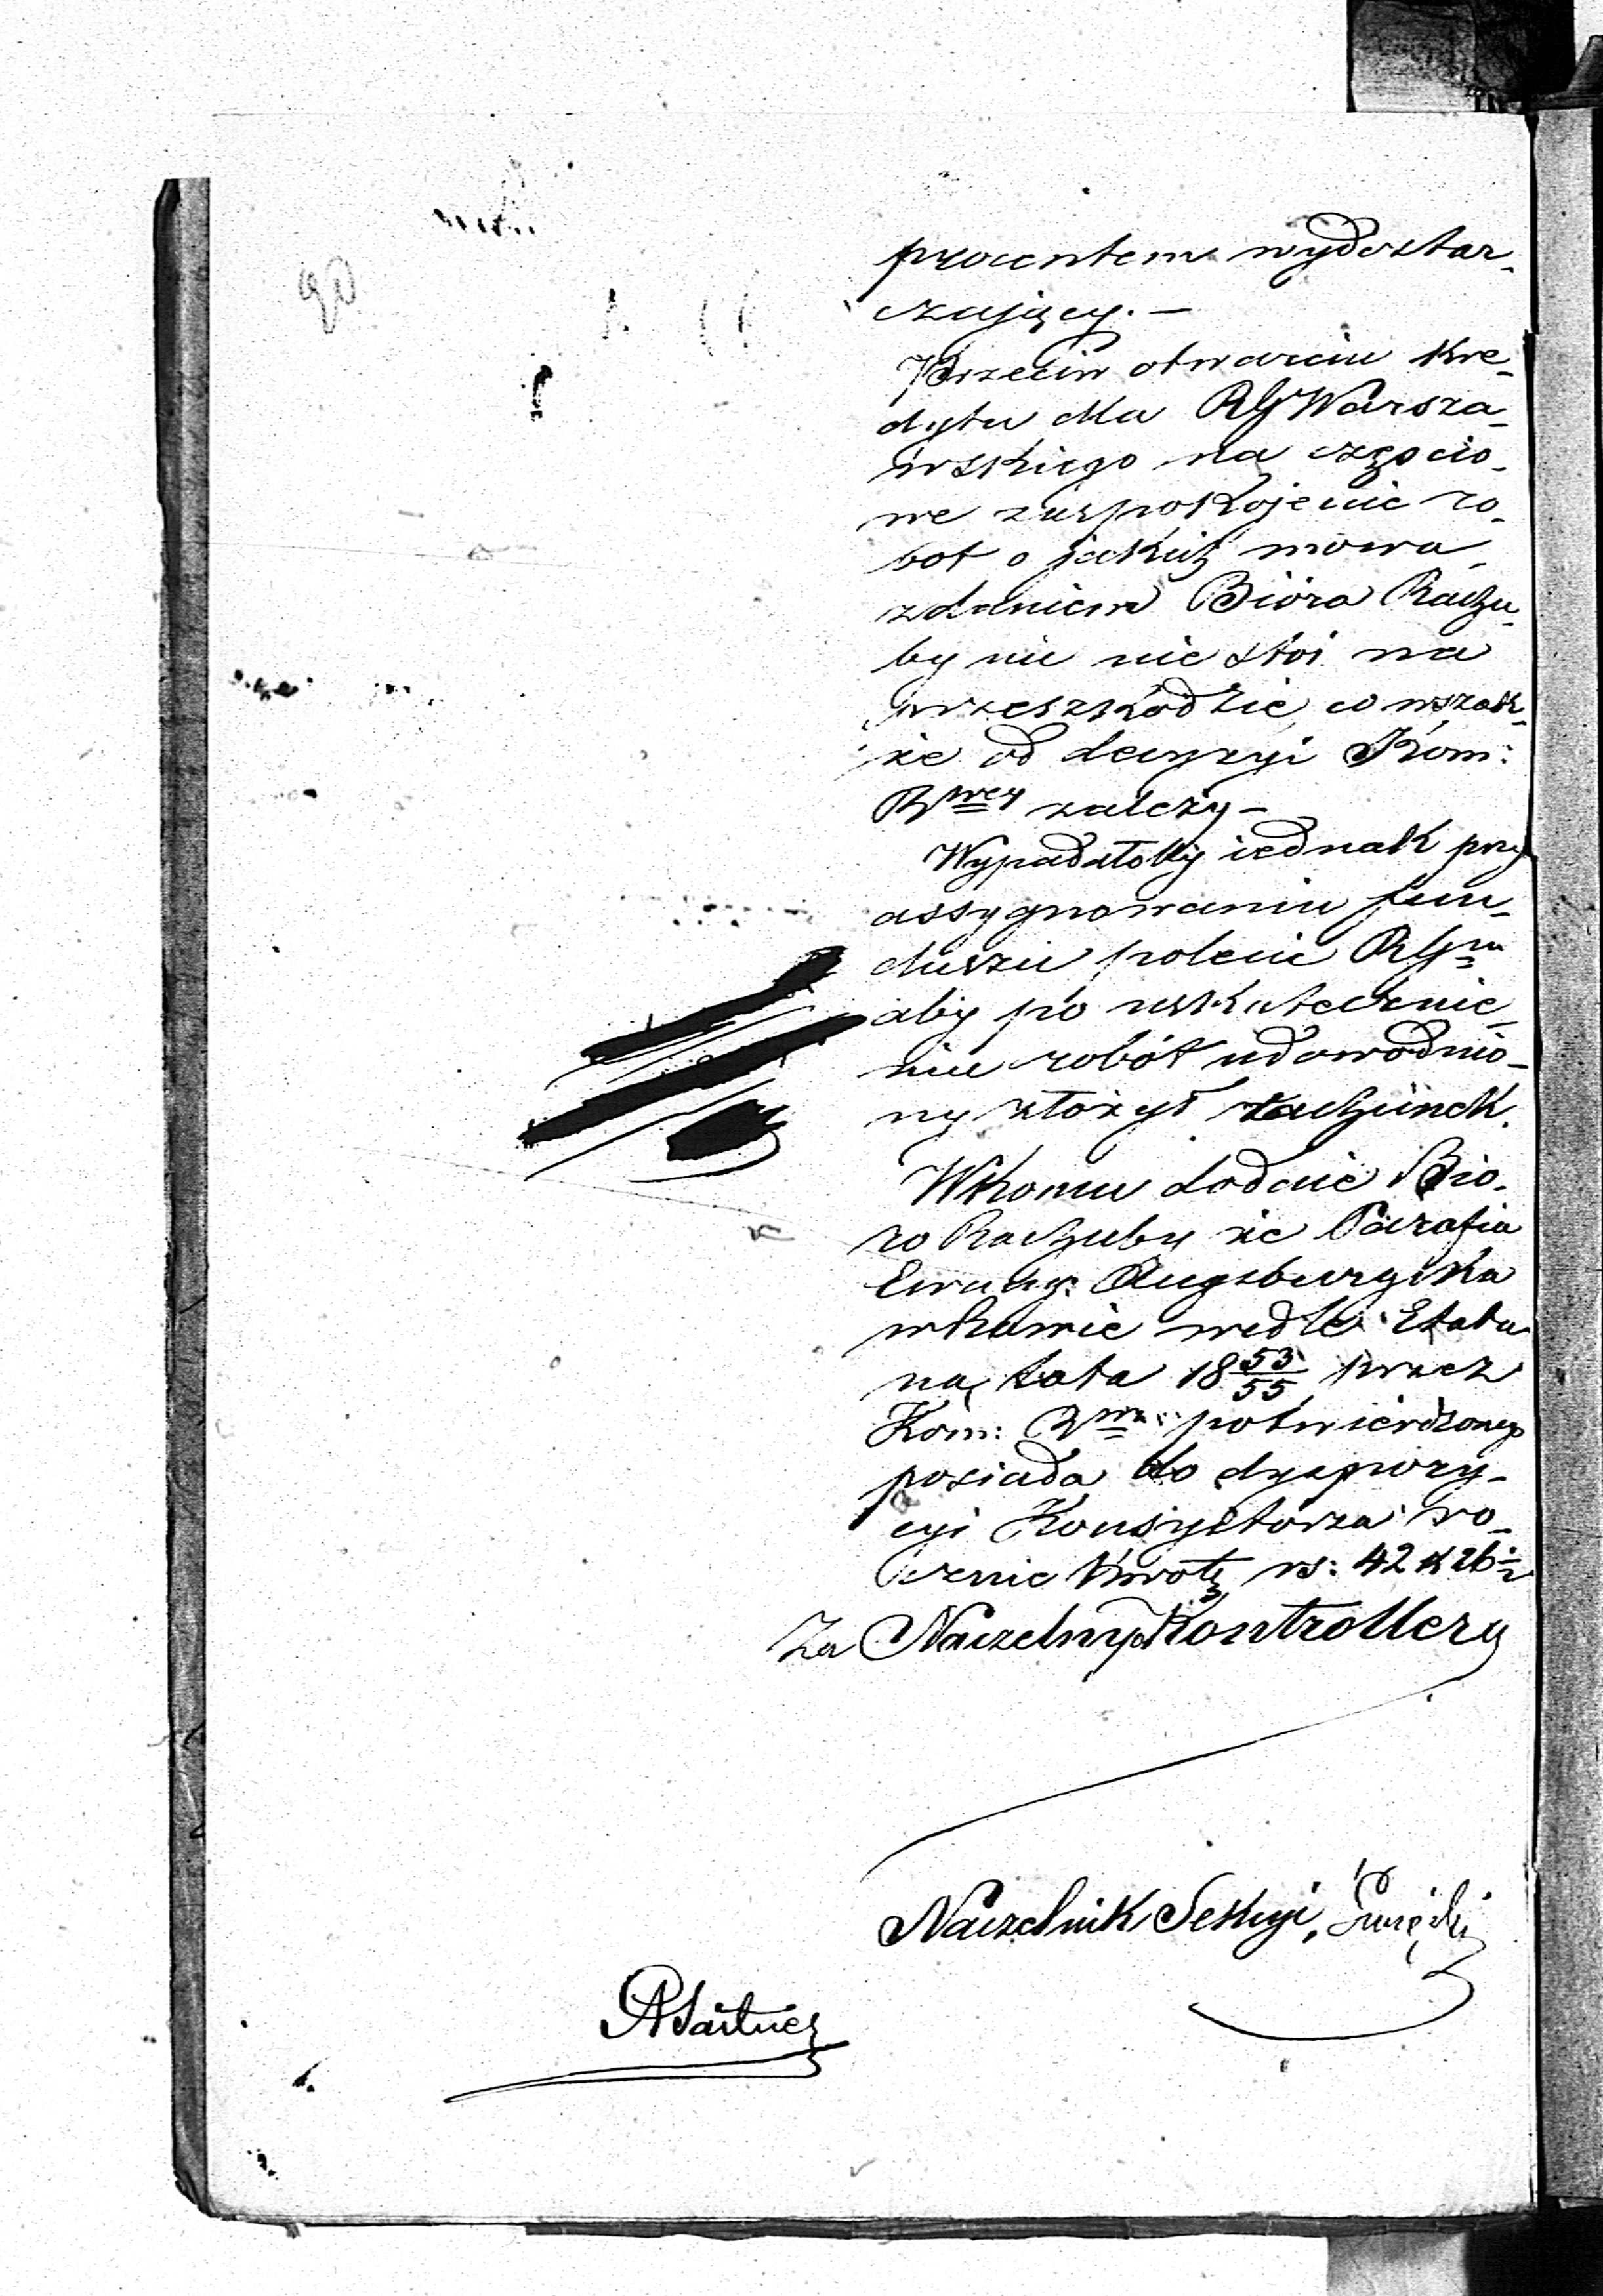 procentem wydostar-
czający. —
Przeciw otwarciu kre-
dytu dla RG Warsza-
wskiego na częścio-
we zaspokojenie ro-
bot o jakich mowa
zdaniem Bióra Rachu-
by nic nie stoi na
przeszkodzie, co wszak-
że od decyzyi Kom:
R<sup>wey</sup> zależy —
Wypadałoby iednak przy
assygnowaniu fun-
duszu polecić RG<sup>mu</sup>
aby po uskutecznie-
niu robót udowodnio-
ny złożył rachunek.
W końcu dodaie Bió-
ro Rachuby że Parafia
Ewang: Augsburgska
w Rawie wedle Etatu
na lata 18 53/55 przez
Kom: R<sup>wą</sup> potwierdzonego
posiada do dyspozy-
cyi Konsystorza ro-
cznie kwotę rs: 42 k 26 ½
Za Naczelnego Kontrollera
Naczelnik Sekcyi,